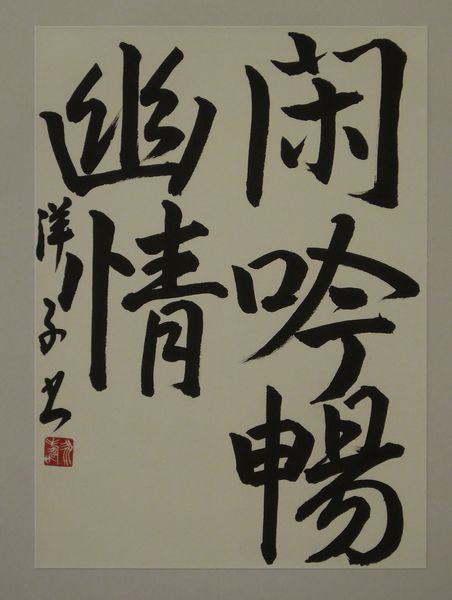 閑吟暢
幽情
洋子书